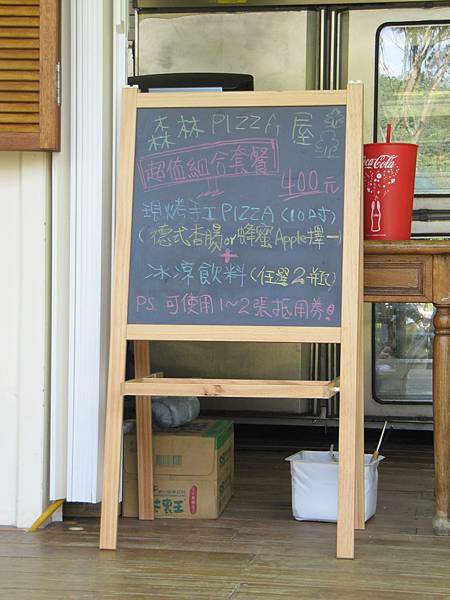 森林PIZZA屋
超值組合套餐!!
400元
現烤手工PIZZA(10吋)
(德式香腸or蜂蜜Apple擇一)
+
冰涼飲料(任選2瓶)
PS.可使用1~2張抵用券!
Coca-Cola